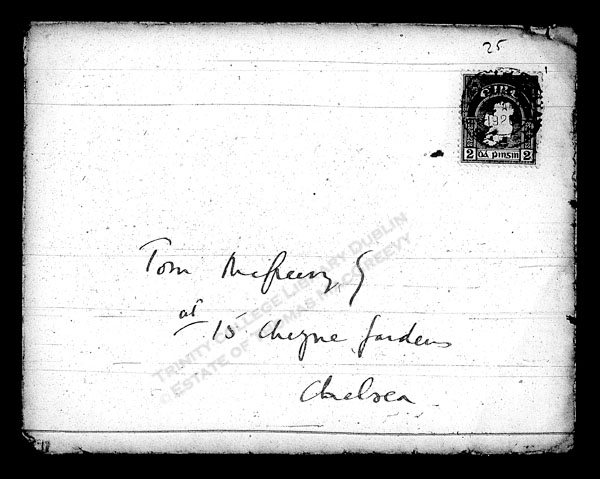 25
ÉIRE
192
2 dá pinsin 2
Tom McGreevy
at 15 Cheyne Gardens
Chelsea
TRINITY COLLEGE LIBRARY DUBLIN
© ESTATE OF THOMAS MACGREEVY